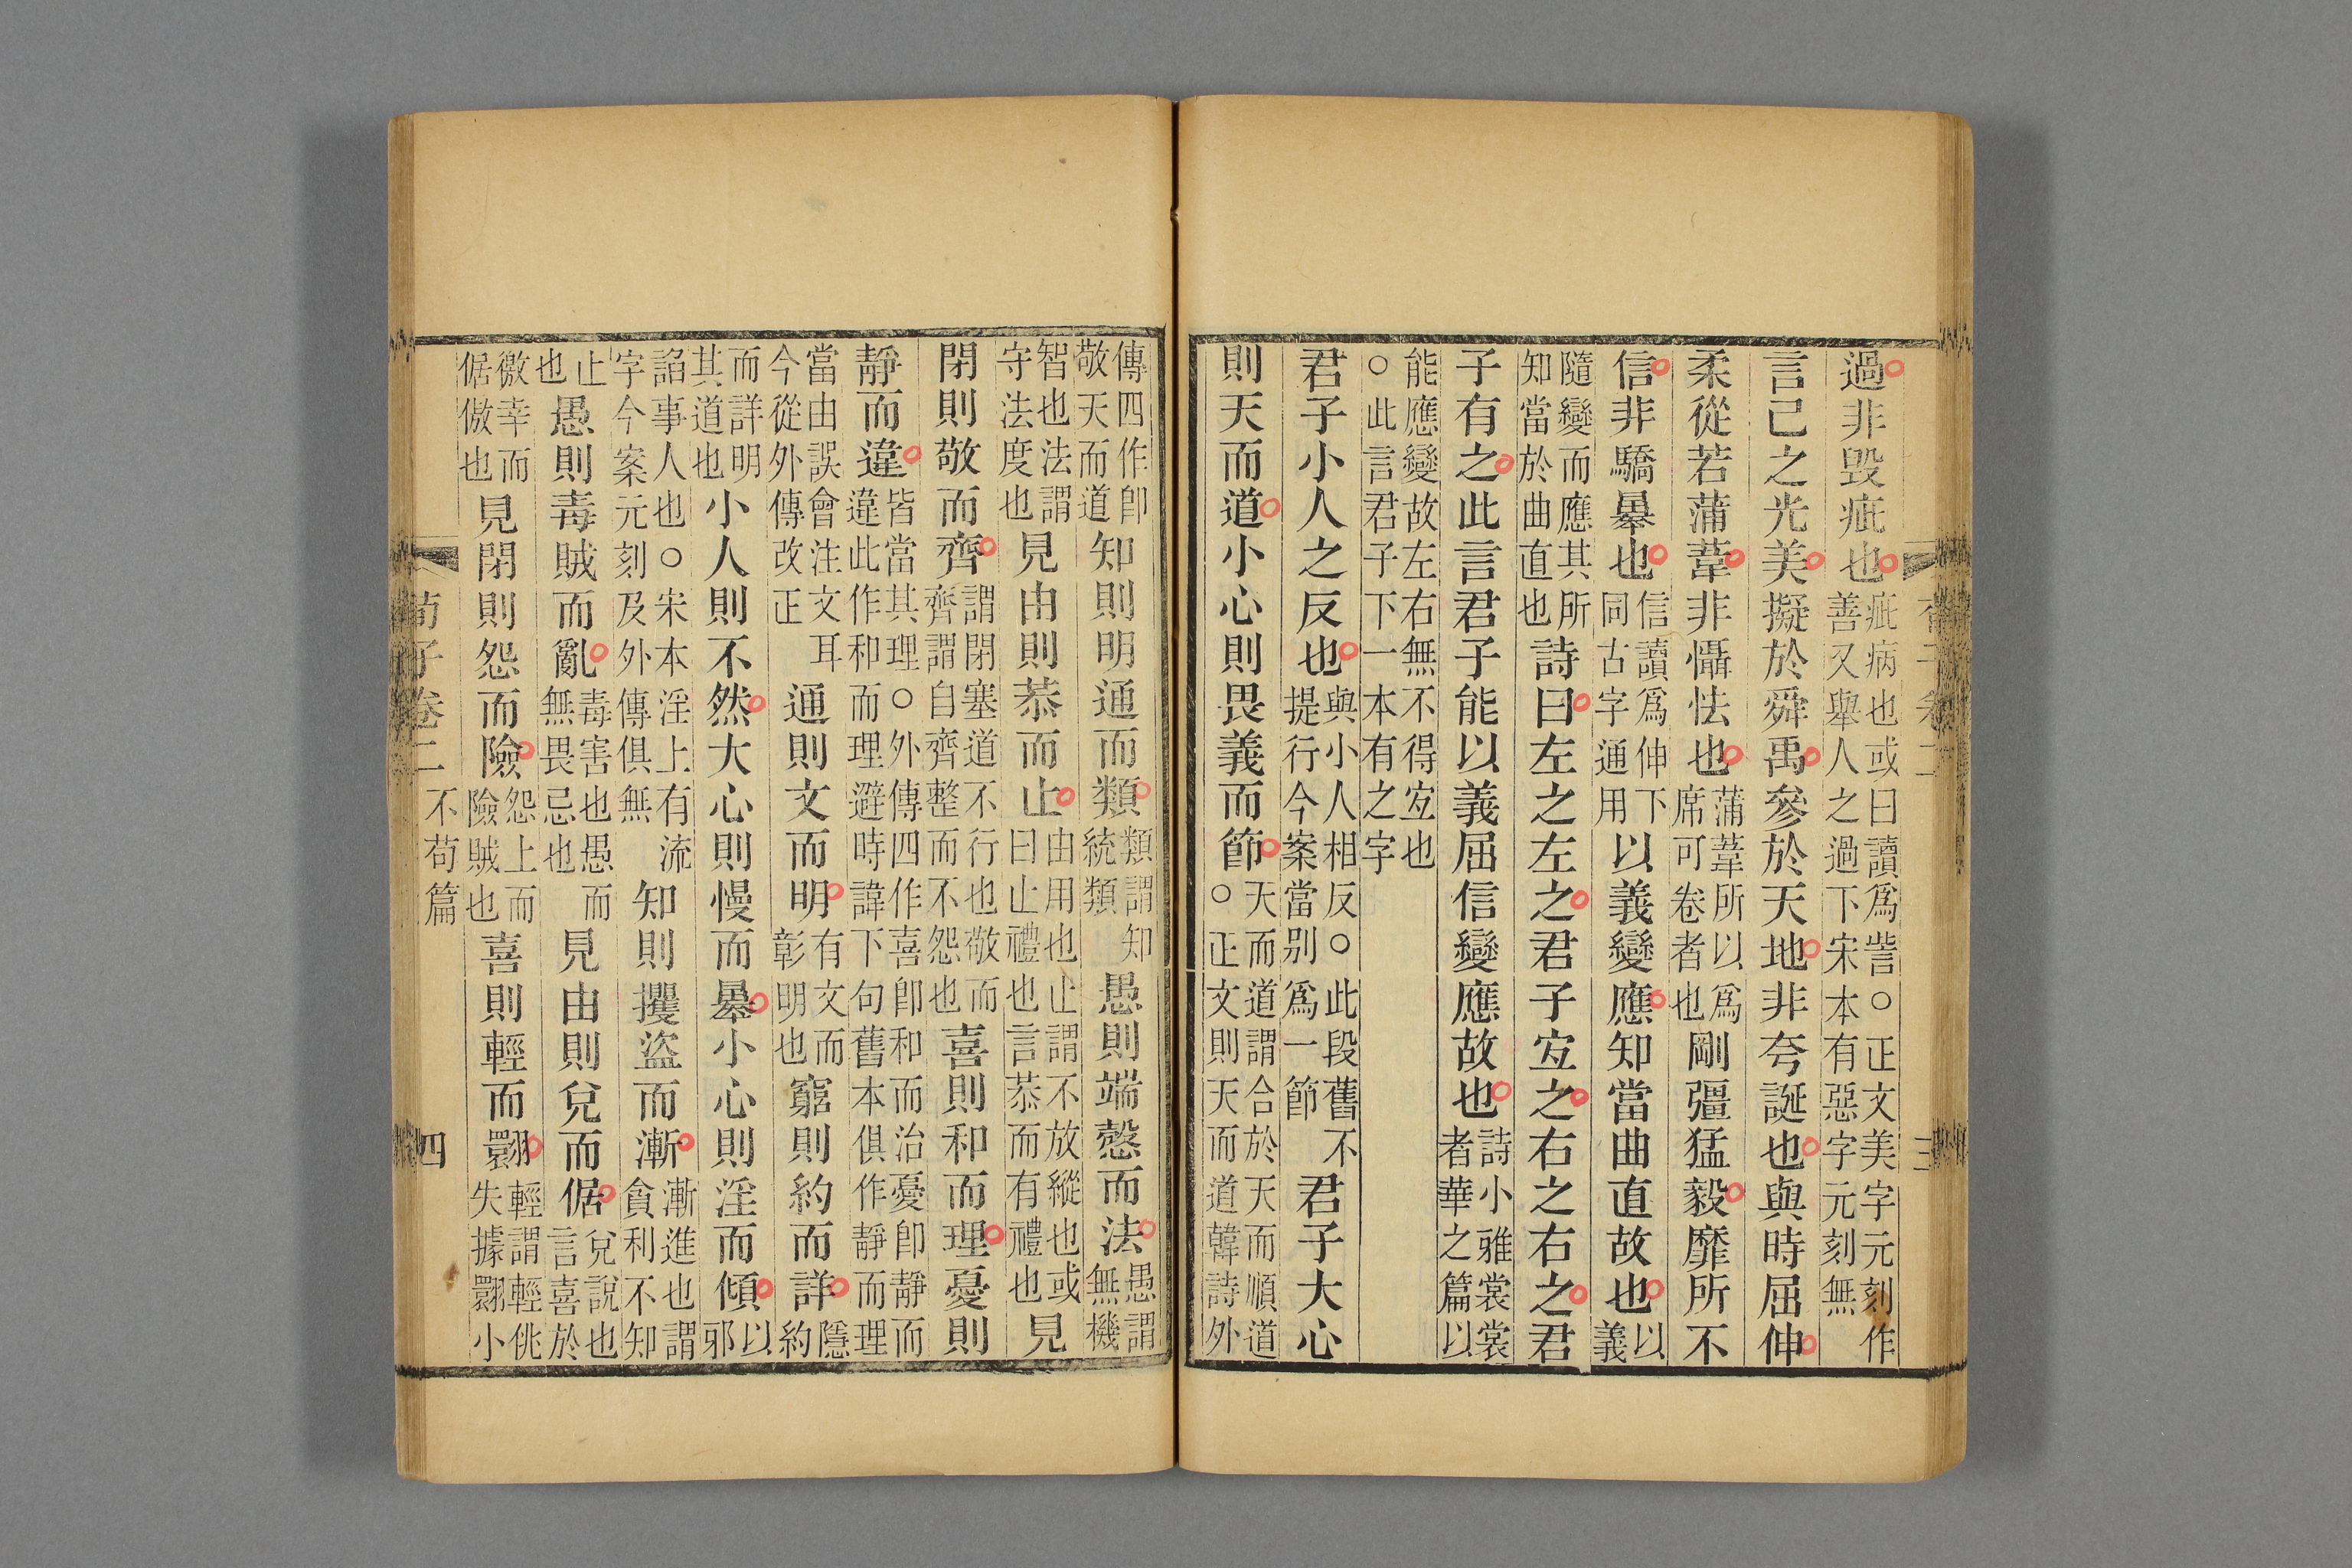 過非毀疵也疵病也或曰讀爲訾○正文美字元刻作善又舉人之過下宋本有惡字元刻無
言己之光美擬於舜禹參於天地非夸誕也與時屈伸
柔從若蒲葦非懾怯也蒲葦所以爲席可卷者也剛彊猛毅靡所不
信非驕暴也信讀爲伸下同古字通用以義變應知當曲直故也以義
隨變而應其所知當於曲直也詩曰左之左之君子宐之右之右之君
子有之此言君子能以義屈信變應故也詩小雅裳裳者華之篇以
能應變故左右無不得宐也○此言君子下一本有之字
君子小人之反也與小人相反○此段舊不提行今案當別爲一節君子大心
則天而道小心則畏義而節天而道謂合於天而順道○正文則天而道韓詩外
傳四作卽敬天而道知則明通而類類謂知統類愚則端慤而法愚謂無機
智也法謂守法度也見由則恭而止由用也止謂不放縱也或曰止禮也言恭而有禮也見
閉則敬而齊謂閉塞道不行也敬而齊謂自齊整而不怨也喜則和而理憂則
靜而違皆當其理○外傳四作喜卽和而治憂卽靜而違此作和而理避時諱下句舊本俱作靜而理
當由誤會注文耳今從外傳改正通則文而明有文而彰明也窮則約而詳隱約
而詳明其道也小人則不然大心則慢而暴小心則淫而傾以邪
諂事人也○宋本淫上有流字今案元刻及外傳俱無知則攫盜而漸漸進也謂貪利不知
止也愚則毒賊而亂毒害也愚而無畏忌也見由則兌而倨兌說也言喜於
徼幸而倨傲也見閉則怨而險怨上而險賊也喜則輕而翾輕謂輕佻失據翾小
荀子卷二 不苟篇 四